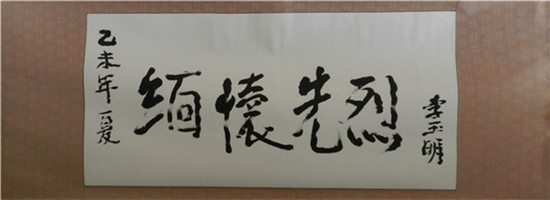 乙未年夏
缅懷先烈
李玉明